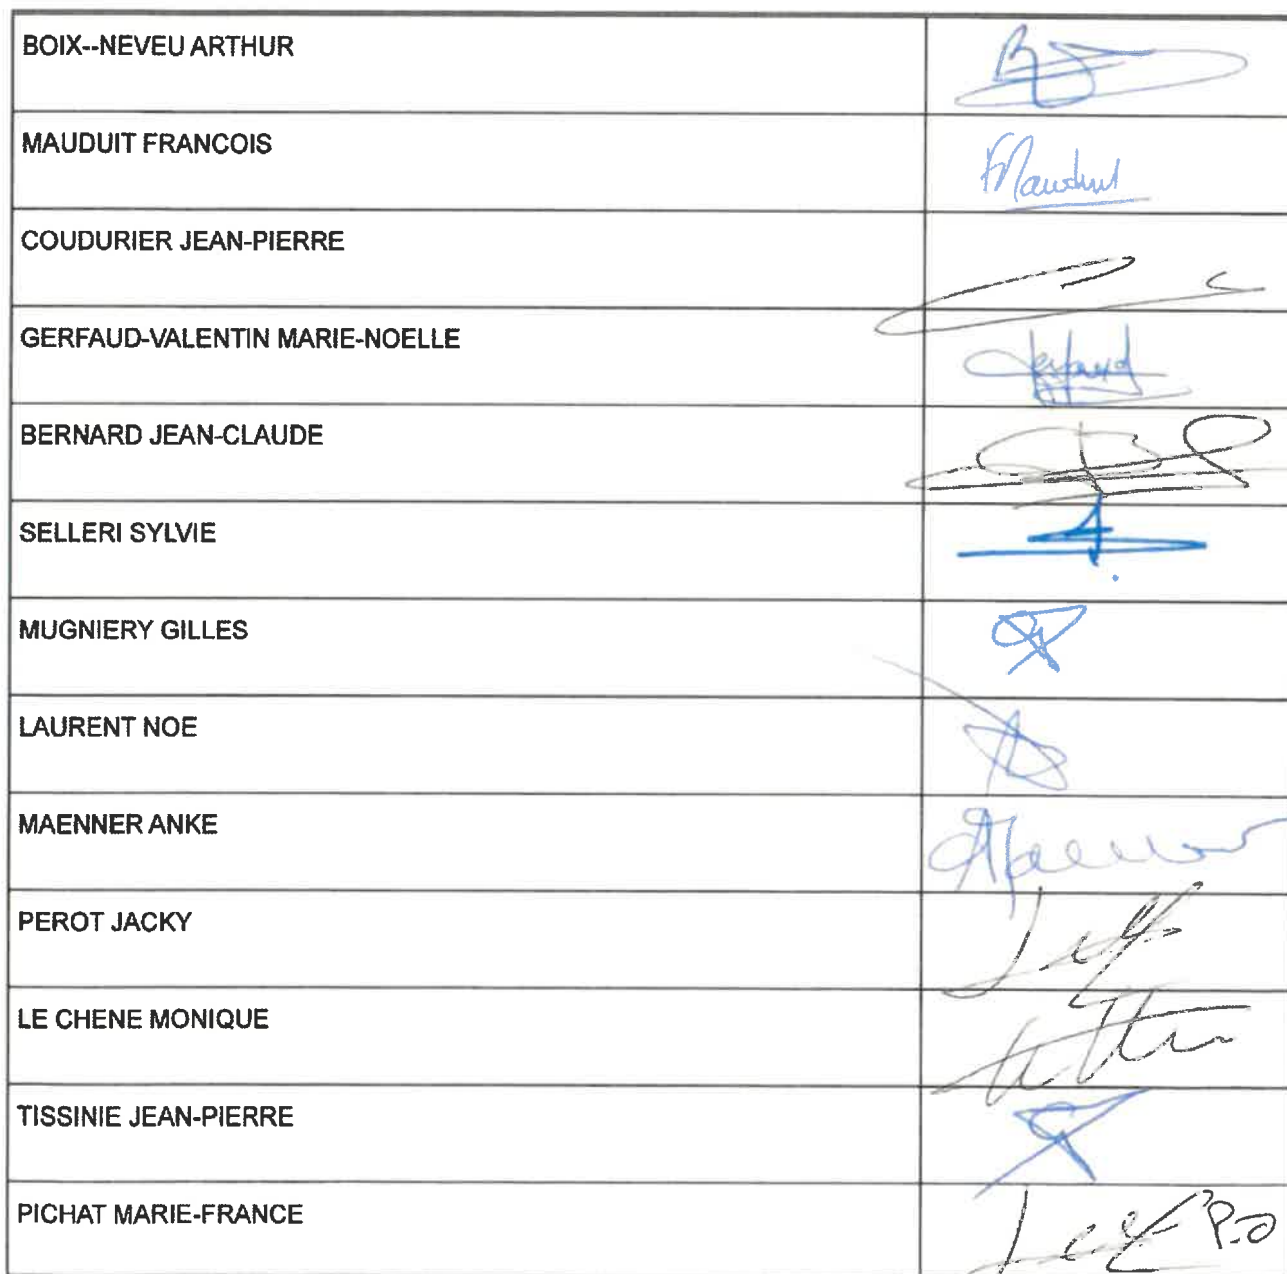 BOIX--NEVEU ARTHUR
MAUDUIT FRANCOIS
FMauduit
COUDURIER JEAN-PIERRE
GERFAUD-VALENTIN MARIE-NOELLE
Gerfaud
BERNARD JEAN-CLAUDE
SELLERI SYLVIE
MUGNIERY GILLES
LAURENT NOE
MAENNER ANKE
PEROT JACKY
LE CHENE MONIQUE
TISSINIE JEAN-PIERRE
PICHAT MARIE-FRANCE
P.O